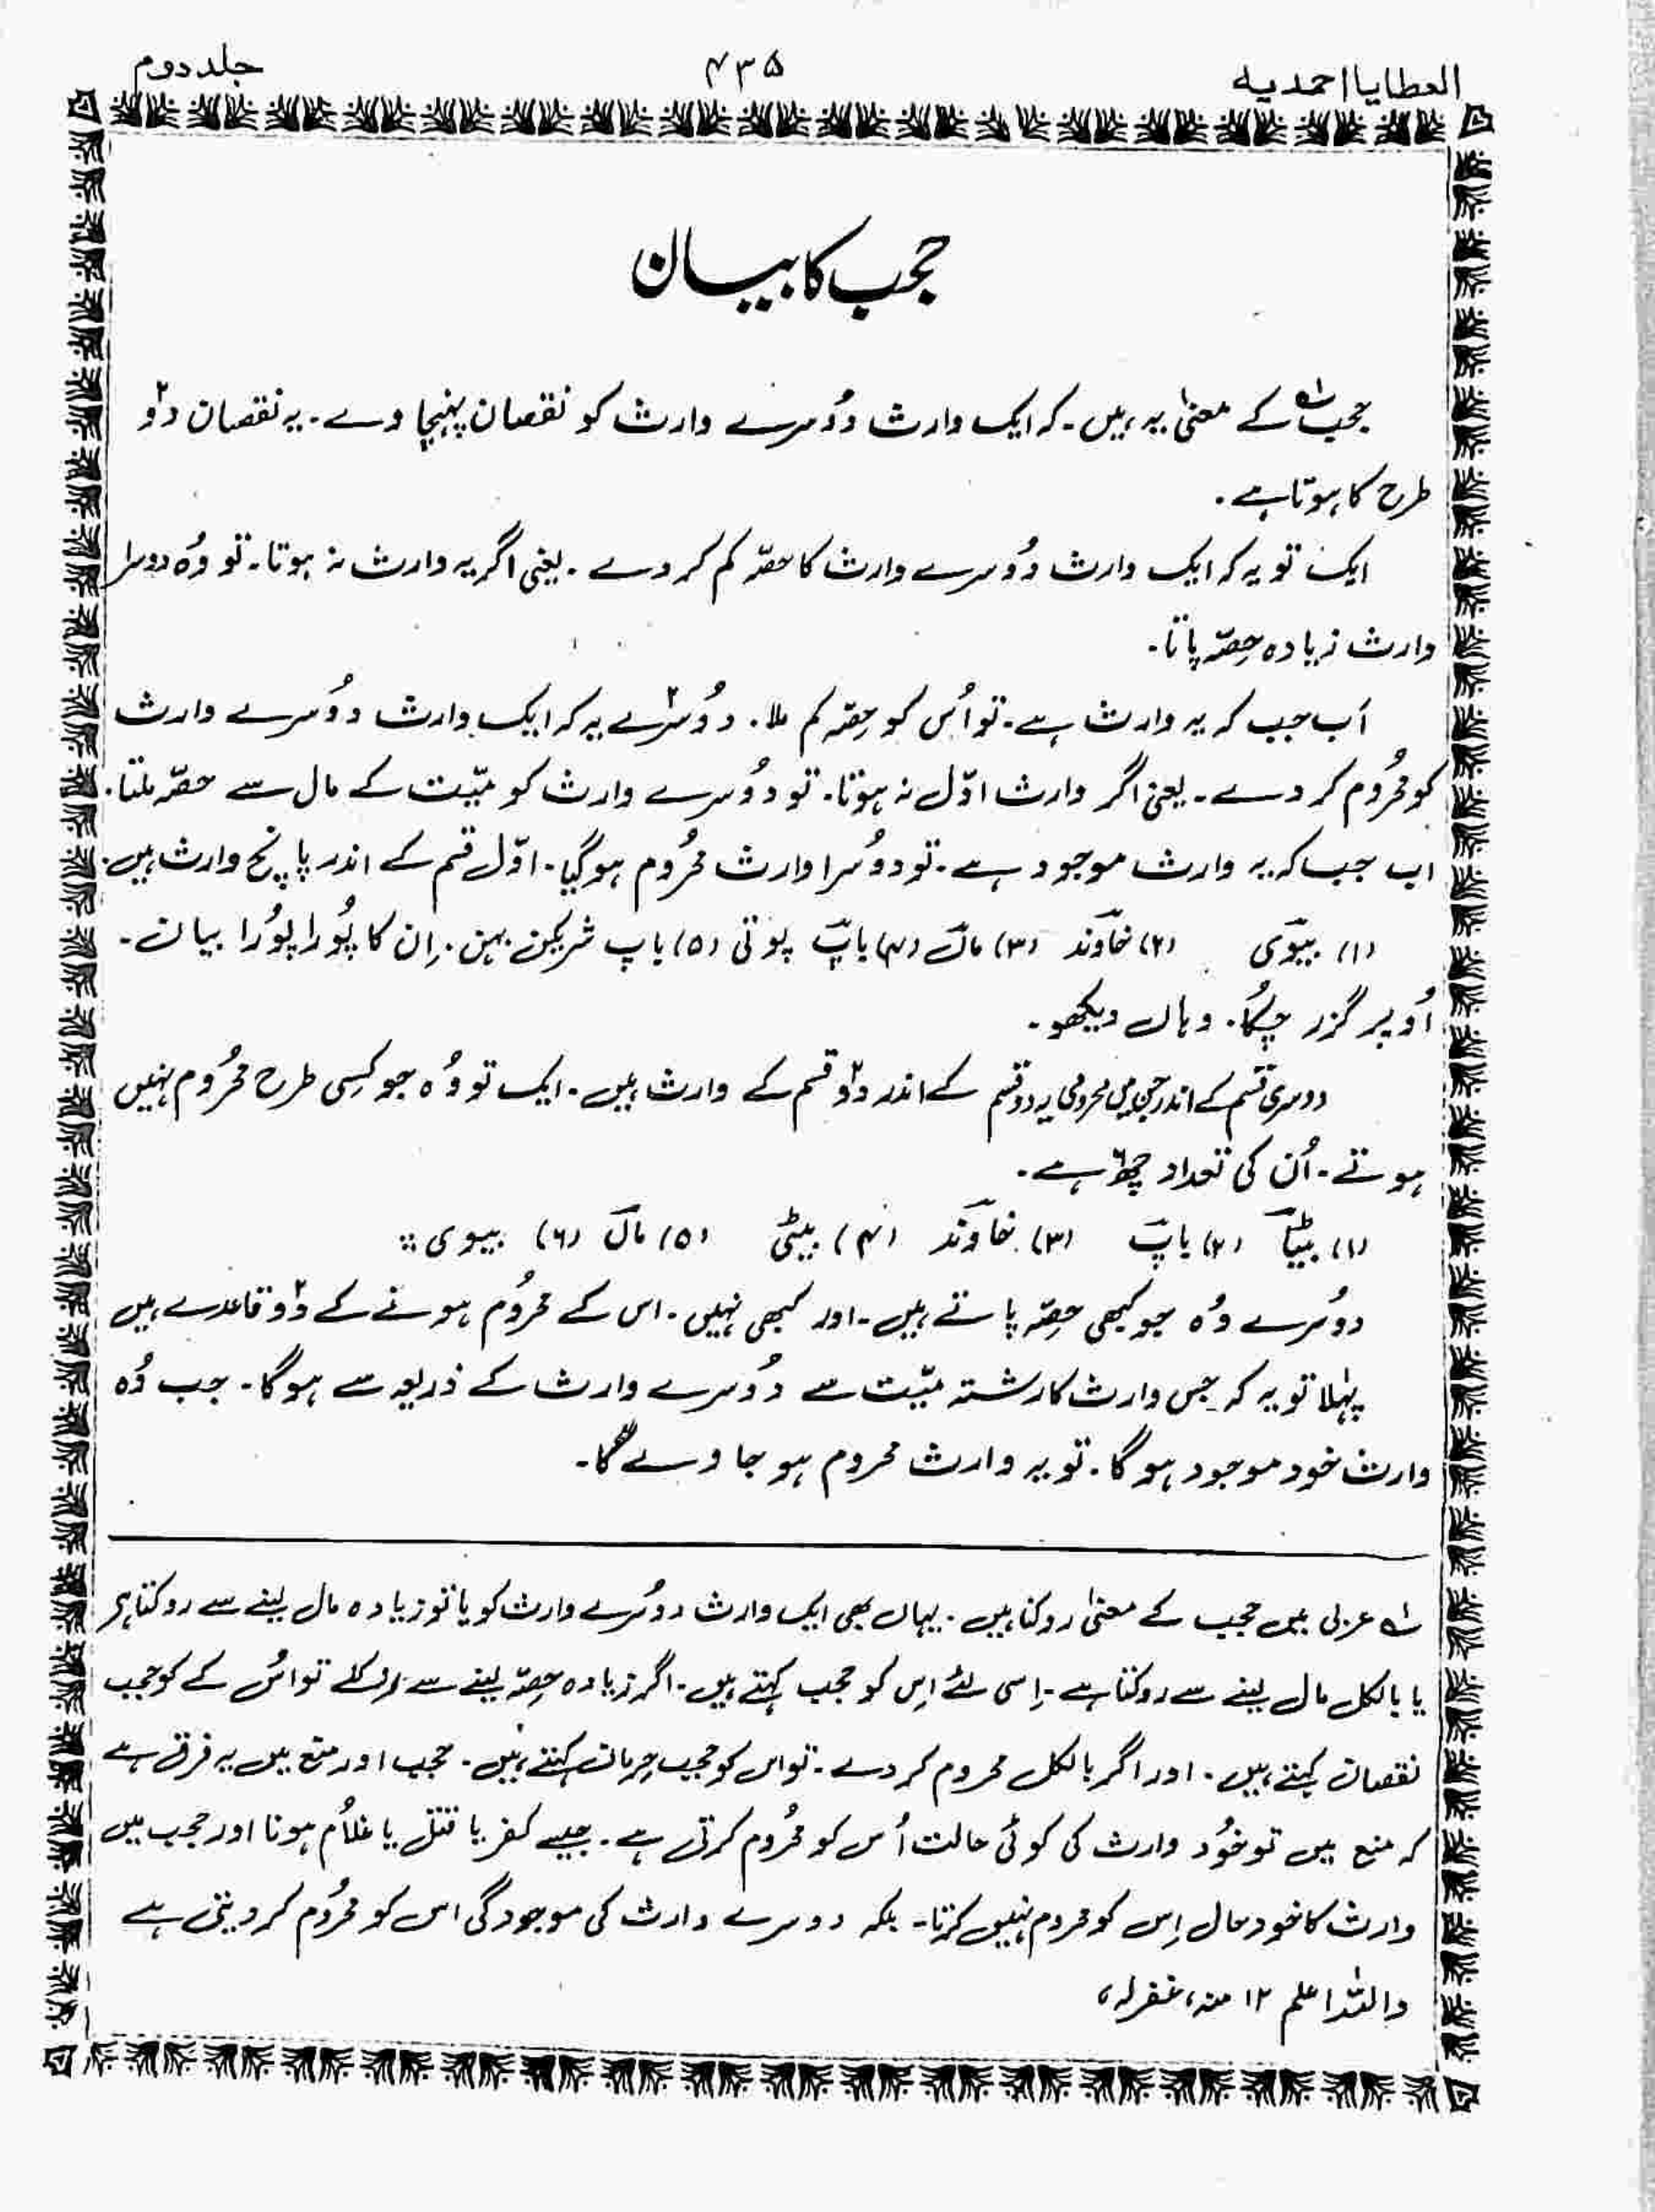 العطایا احمدیہ
۴۳۵
جلد دوم
حجب کا بیان
حجب۱ کے معنیٰ یہ ہیں۔ کہ ایک وارث دُوسرے وارث کو نقصان پہنچا وے۔ یہ نقصان دو۲
طرح کا ہوتا ہے۔
ایک تو یہ کہ ایک وارث دُوسرے وارث کا حصّہ کم کر دے۔ یعنی اگر یہ وارث نہ ہوتا۔ تو وُہ دوسرا
وارث زیادہ حِصّہ پاتا۔
اَب جب کہ یہ وارث ہے۔ تو اُس کو حِصّہ کم ملا۔ دُوسرے۲ یہ کہ ایک وارث دُوسرے وارث
کو محرُوم کر دے۔ یعنی اگر وارث اوّل نہ ہوتا۔ تو دُوسرے وارث کو میّت کے مال سے حصّہ ملتا۔
اب جب کہ یہ وارث موجود ہے۔ تو دُوسرا وارث محرُوم ہوگیا۔ اوّل قسم کے اندر پانچ وارث ہیں۔
(۱) بیوی (۲) خاوند (۳) ماں (۴) باپ پوتی (۵) باپ شریکن بہن۔ اِن کا پُورا پُورا بیان۔
اُوپر گزر چُکا۔ وہاں دیکھو۔
دوسری قسم کے اندر حجب میں محرومی یہ دو قسم کے اندر دو۲ قسم کے وارث ہیں۔ ایک تو وُہ جو کِسی طرح محرُوم نہیں
ہوتے۔ اُن کی تعداد چھ۶ ہے۔
(۱) بیٹا (۲) باپ (۳) خاوند (۴) بیٹی (۵) ماں (۶) بیوی
دُوسرے وُہ جو کبھی حِصّہ پاتے ہیں۔ اور کبھی نہیں۔ اس کے محرُوم ہونے کے دو۲ قاعدے ہیں
پہلا تو یہ کہ جس وارث کا رشتہ میّت سے دُوسرے وارث کے ذریعہ سے ہوگا۔ جب وُہ
وارث خود موجود ہوگا۔ تو یہ وارث محروم ہو جا وے گا۔
۱ عربی میں حجب کے معنیٰ روکنا ہیں۔ یہاں بھی ایک وارث دوسُرے وارث کو یا تو زیادہ مال لینے سے روکتا ہے
یا بالکل مال لینے سے روکتا ہے۔ اِسی لئے اِس کو حجب کہتے ہیں۔ اگر زیادہ حِصّہ لینے سے روکے تو اُس کے کو حجب
نقصان کہتے ہیں۔ اور اگر بالکل محروم کر دے۔ تو اس کو حجب حِرمان کہتے ہیں۔ حجب اور منع میں یہ فرق ہے
کہ منع میں تو خُود وارث کی کوئی حالت اُس کو محُروم کرتی ہے۔ جیسے کفر یا قتل یا غلاُم ہونا اور حجب میں
وارث کا خود حال اِس کو محروم نہیں کرتا۔ بلکہ دوسرے وارث کی موجودگی اس کو محرُوم کر دیتی ہے
واللہ اعلم ۱۲ منہ، غفرلہ،